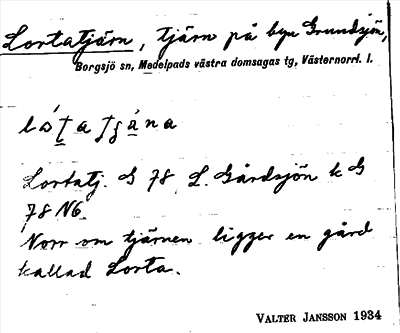 Lortatjärn, tjärn på byn Grundsjön,
Borgsjö sn, Medelpads västra domsagas tg, Västernorrl. l.
Lortatj. G 78 L. Gårdsjön k G
78 N6.
Norr om tjärnen ligger en gård
kallad Lorta.
VALTER JANSSON 1934